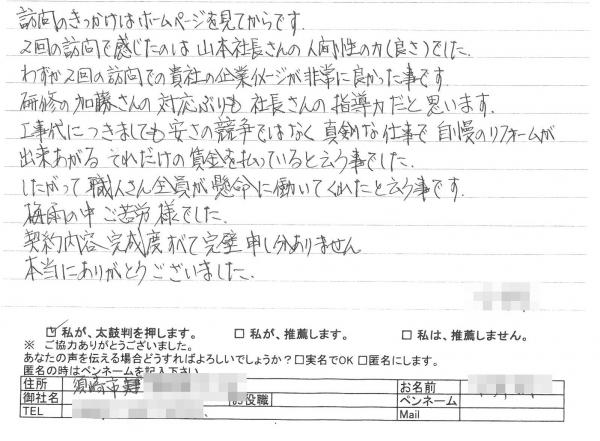 訪問のきっかけはホームページを見てからです。
2回の訪問で感じたのは山本社長さんの人間性の力(良さ)でした。
わずか2回の訪問での貴社の企業イメージが非常に良かった事です。
研修の加藤さんの対応ぶりも社長さんの指導力だと思います。
工事代につきましても安さの競争ではなく真剣な仕事で自慢のリフォームが
出来あがるそれだけの賃金を払っていると云う事でした。
したがって職人さん全員が懸命に働いてくれたと云う事です。
梅雨の中ご苦労様でした。
契約内容、完成度すべて完璧申し分ありません
本当にありがとうございました。
☑私が、太鼓判を押します。 □私が、推薦します。 □私は、推薦しません。
※ ご協力ありがとうございました。
あなたの声を伝える場合どうすればよろしいでしょうか?□実名でOK □匿名にします。
匿名の時はペンネームを記入下さい
住所 須崎市 お名前
御社名 お役職 ペンネーム
TEL Mail